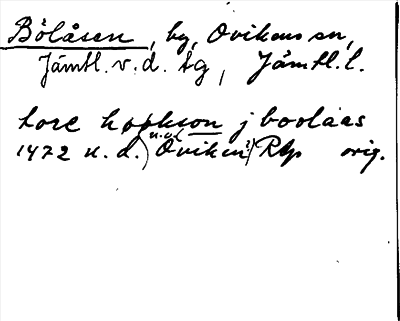 Bölåsen, by, Ovikens sn,
Jämtl. v. d. tg, Jämtl. l.
tore hookson j boolaas
1472 u. d. (u.o. Oviken?) Rap orig.